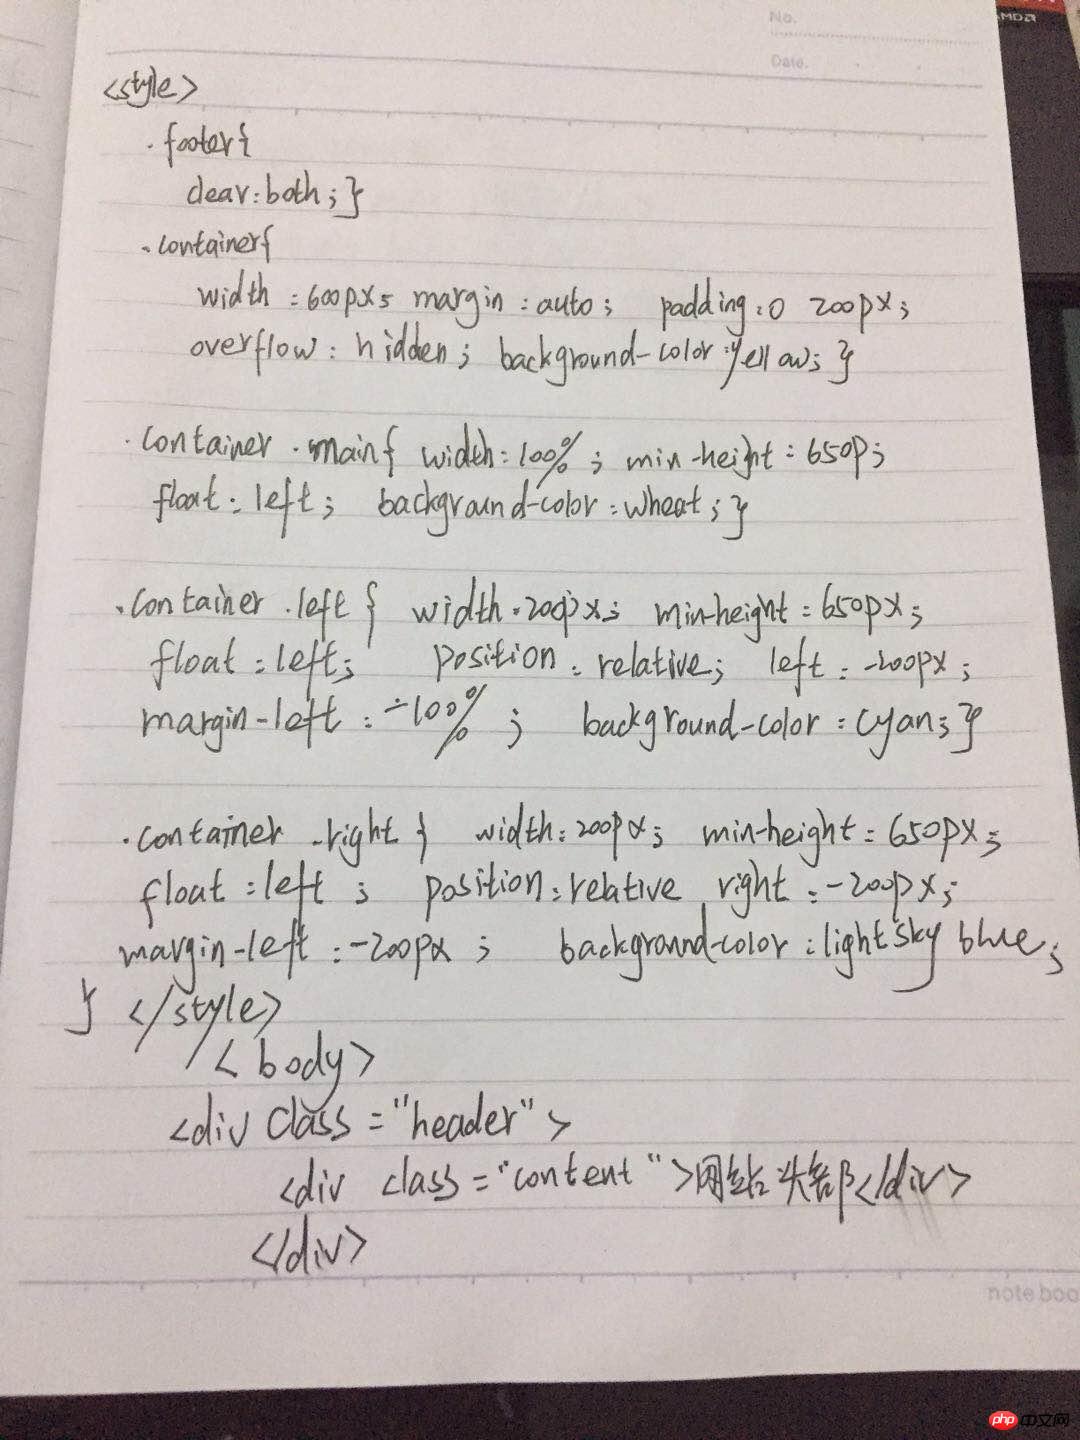 AMD
No.
Date.
<style>
.footer{
clear:both;}
.container{
width:600px; margin:auto; padding:0 200px;
overflow:hidden; background-color:yellow;}
.container .main{ width:100%; min-height:650p;
float:left; background-color:wheat;}
.container .left { width:200px; min-height:650px;
float:left; position:relative; left:-200px;
margin-left:-100%; background-color:cyan;}
.container .right { width:200px; min-height:650px;
float:left; position:relative right:-200px;
margin-left:-200px; background-color:lightsky blue;
} </style>
<body>
<div class="header">
<div class="content">网站头部</div>
</div>
noteboo
php中文网